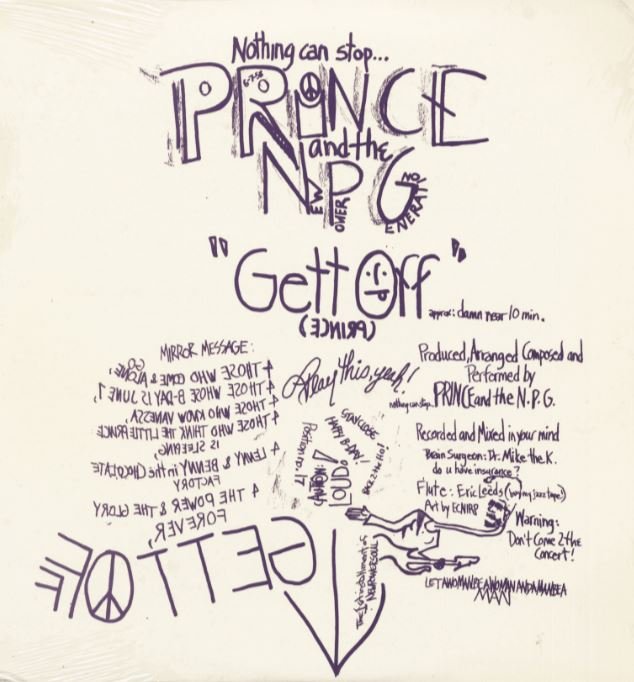 Nothing can stop...
PRINCE
6-7-58
and the
NPG
NEW POWER GENERATION
"Gett Off"
approx: damn near 10 min.
(PRINCE)
MIRROR MESSAGE:
4 THOSE WHO COME & ARE GONE,
4 THOSE WHOSE B-DAY IS JUNE 7,
4 THOSE WHO KNOW VANESSA,
4 THOSE WHO THINK THE LITTLE PRINCE
IS SLEEPING,
4 LENNY & BENNY in the CHOCOLATE
FACTORY
4 THE POWER & THE GLORY
FOREVER,
GETT OFF
Play this, yeah!
STAY CLOSE
HAPPY B-DAY!
Position no. 17
CAUTION:
LOUD!
The 1st installment of
NEWPOWERSOUL
Produced, Arranged Composed and
Performed by
nothing can stop... PRINCE and the N.P.G.
Recorded and Mixed in your mind
Brain Surgeon: Dr. Mike the K.
do u have insurance?
Flute: Eric Leeds (buy my jazz tape!)
Art by ECNIRP
Warning:
Don't Come 2 the
Concert!
LET A WOMAN BE A WOMAN AND A MAN BE A
MAN